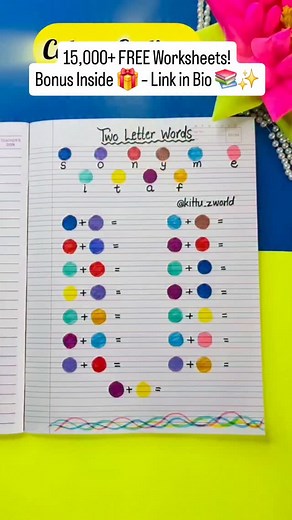 15,000+ FREE Worksheets!
Bonus Inside 🎁 - Link in Bio 📚✨
Two Letter Words
s o n y m e
i t a f
@kittu_zworld
+ = + =
+ = + =
+ = + =
+ = + =
+ = + =
+ = + =
+ = + =
+ =